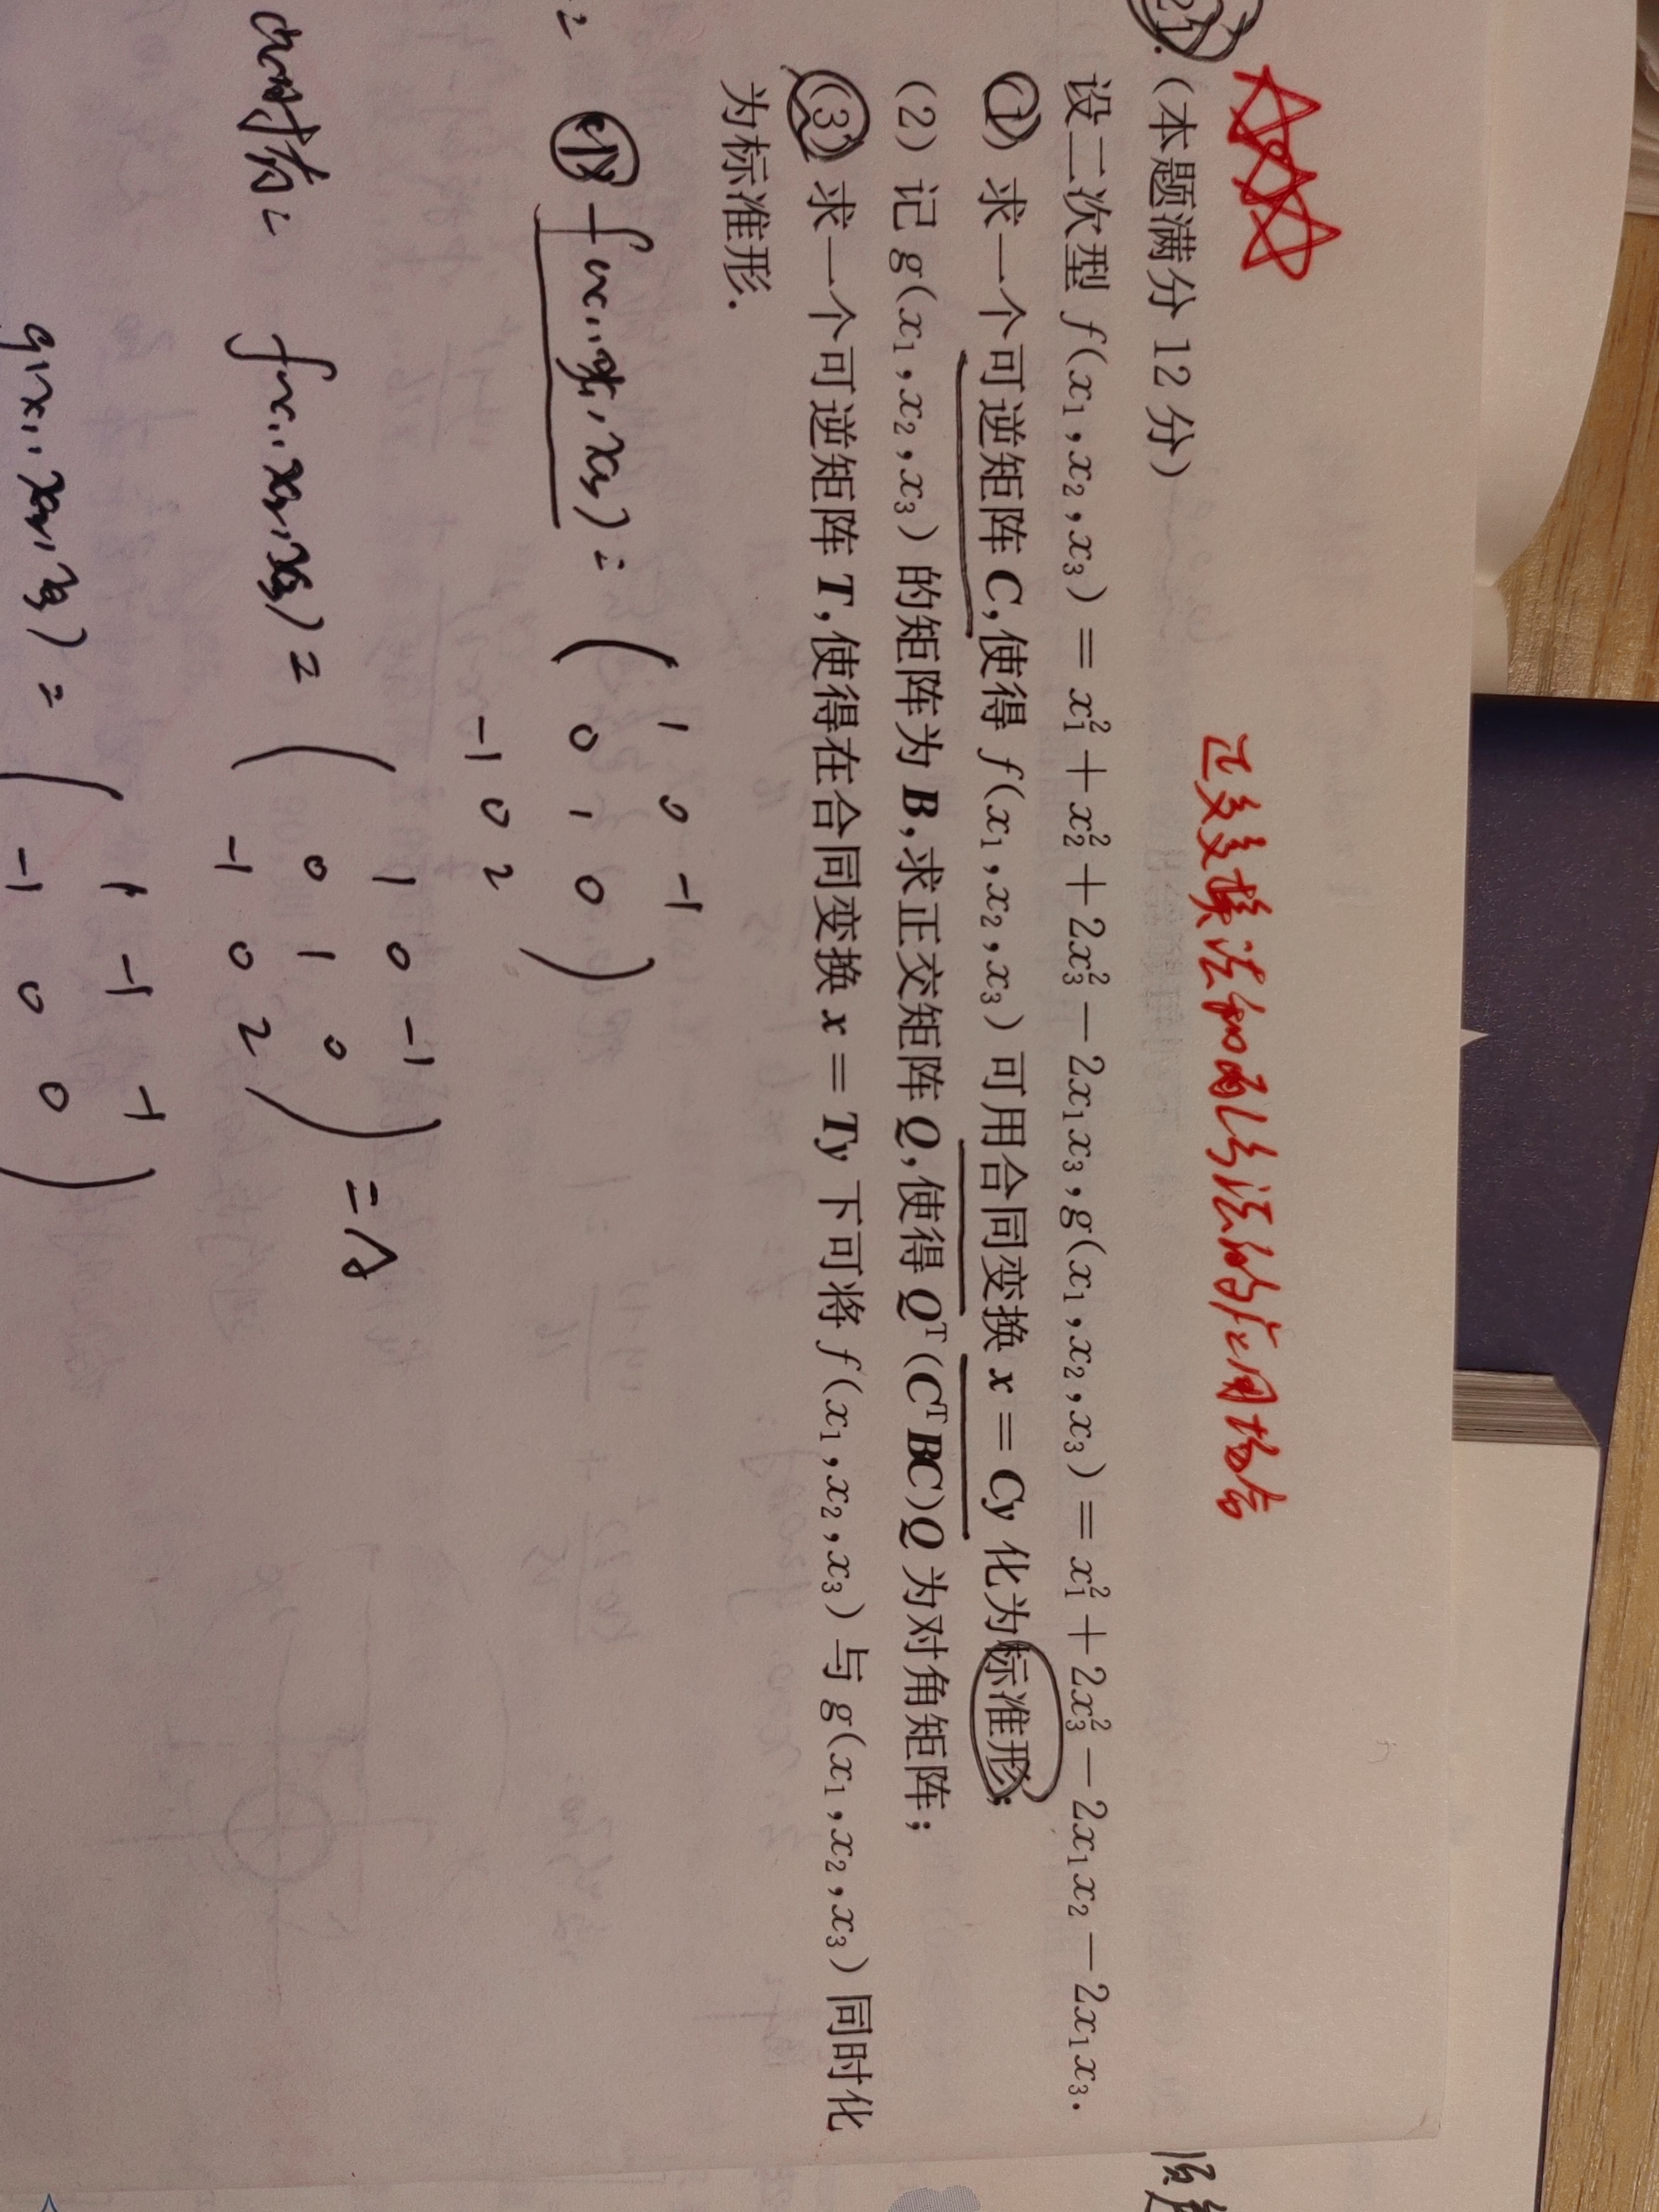 正交变换法和配方法的作用场合
21.(本题满分 12 分)
设二次型 f(x₁,x₂,x₃) = x₁² + x₂² + 2x₃² − 2x₁x₃,g(x₁,x₂,x₃) = x₁² + 2x₃² − 2x₁x₂ − 2x₁x₃.
(1) 求一个可逆矩阵 C,使得 f(x₁,x₂,x₃) 可用合同变换 x = Cy 化为标准形;
(2) 记 g(x₁,x₂,x₃) 的矩阵为 B,求正交矩阵 Q,使得 Qᵀ(CᵀBC)Q 为对角矩阵;
(3) 求一个可逆矩阵 T,使得在合同变换 x = Ty 下可将 f(x₁,x₂,x₃) 与 g(x₁,x₂,x₃) 同时化
为标准形.
(1) f(x₁,x₂,x₃) = ( 1 0 −1
0 1 0 )
−1 0 2
f(x₁,x₂,x₃) = ( 1 0 −1
0 1 0 ) = A
−1 0 2
g(x₁,x₂,x₃) = ( 1 −1 −1
−1 0 0 )